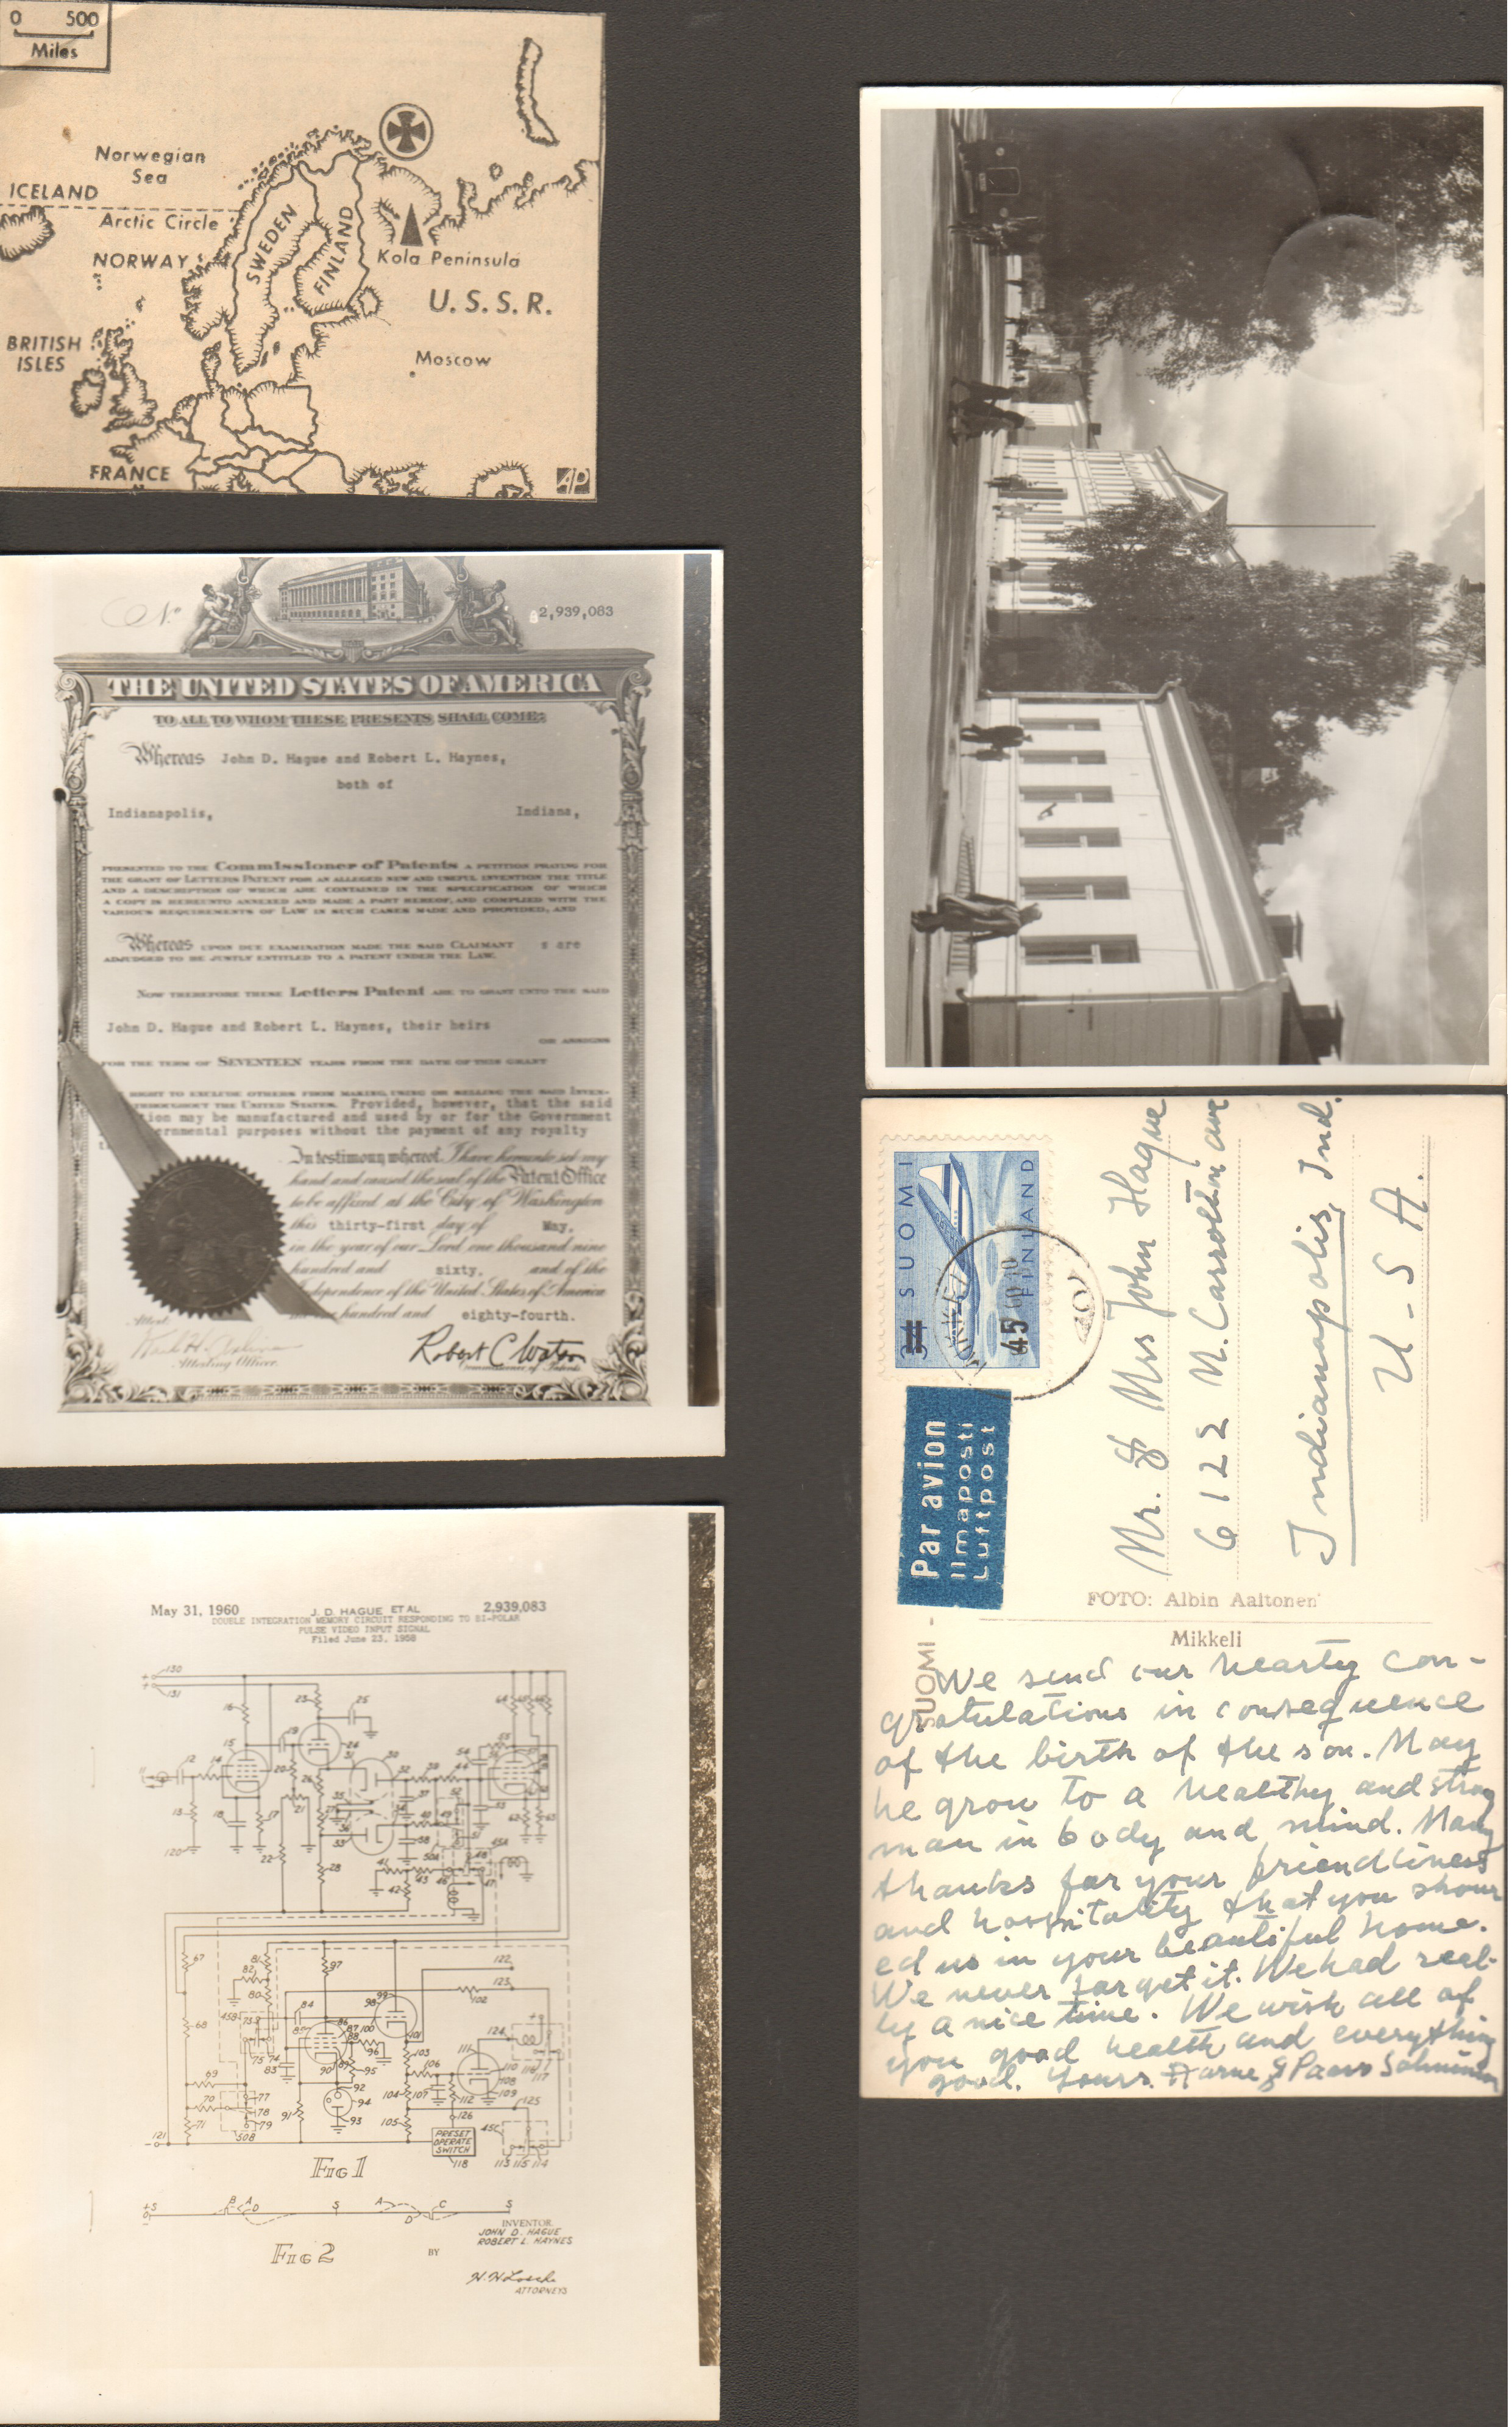 0 500
Miles
Norwegian
Sea
ICELAND
Arctic Circle
NORWAY
SWEDEN
FINLAND
Kola Peninsula
U.S.S.R.
BRITISH
ISLES
Moscow
FRANCE
AP
No
2,939,083
THE UNITED STATES OF AMERICA
TO ALL TO WHOM THESE PRESENTS SHALL COME:
Whereas John D. Hague and Robert L. Haynes,
both of
Indianapolis, Indiana,
PRESENTED TO THE Commissioner of Patents A PETITION PRAYING FOR
THE GRANT OF LETTERS PATENT FOR AN ALLEGED NEW AND USEFUL INVENTION THE TITLE
AND A DESCRIPTION OF WHICH ARE CONTAINED IN THE SPECIFICATION OF WHICH
A COPY IS HEREUNTO ANNEXED AND MADE A PART HEREOF, AND COMPLIED WITH THE
VARIOUS REQUIREMENTS OF LAW IN SUCH CASES MADE AND PROVIDED, AND
Whereas UPON DUE EXAMINATION MADE THE SAID CLAIMANT s are
ADJUDGED TO BE JUSTLY ENTITLED TO A PATENT UNDER THE LAW.
NOW THEREFORE THESE Letters Patent ARE TO GRANT UNTO THE SAID
John D. Hague and Robert L. Haynes, their heirs
OR ASSIGNS
FOR THE TERM OF SEVENTEEN YEARS FROM THE DATE OF THIS GRANT
RIGHT TO EXCLUDE OTHERS FROM MAKING, USING OR SELLING THE SAID INVEN-
THROUGHOUT THE UNITED STATES. Provided, however, that the said
tion may be manufactured and used by or for the Government
ernmental purposes without the payment of any royalty
In testimony whereof I have hereunto set my
hand and caused the seal of the Patent Office
to be affixed at the City of Washington
this thirty-first day of May,
in the year of our Lord one thousand nine
hundred and sixty, and of the
Independence of the United States of America
hundred and eighty-fourth.
Attest:
Attesting Officer.
Robert C Watson
Commissioner of Patents
May 31, 1960 J. D. HAGUE ET AL 2,939,083
DOUBLE INTEGRATION MEMORY CIRCUIT RESPONDING TO BI-POLAR
PULSE VIDEO INPUT SIGNAL
Filed June 23, 1958
PRESET
OPERATE
SWITCH
118
FIG 1
FIG 2
INVENTOR.
JOHN D. HAGUE
ROBERT L. HAYNES
BY
ATTORNEYS
34 SUOMI
45 FINLAND
MIKKELI
60
Par avion
Ilmaposti
Luftpost
Mr. & Mrs John Hague
6122 N. Carrolton ave
Indianapolis, Ind.
U-S A.
FOTO: Albin Aaltonen
Mikkeli
SUOMI -
We send our hearty con-
gratulations in consequence
of the birth of the son. May
he grow to a healthy and strong
man in body and mind. Many
thanks for your friendliness
and hospitality that you show
ed us in your beautiful home.
We never forget it. We had real-
ly a nice time. We wish all of
you good health and everything
good. Yours. Aarne &